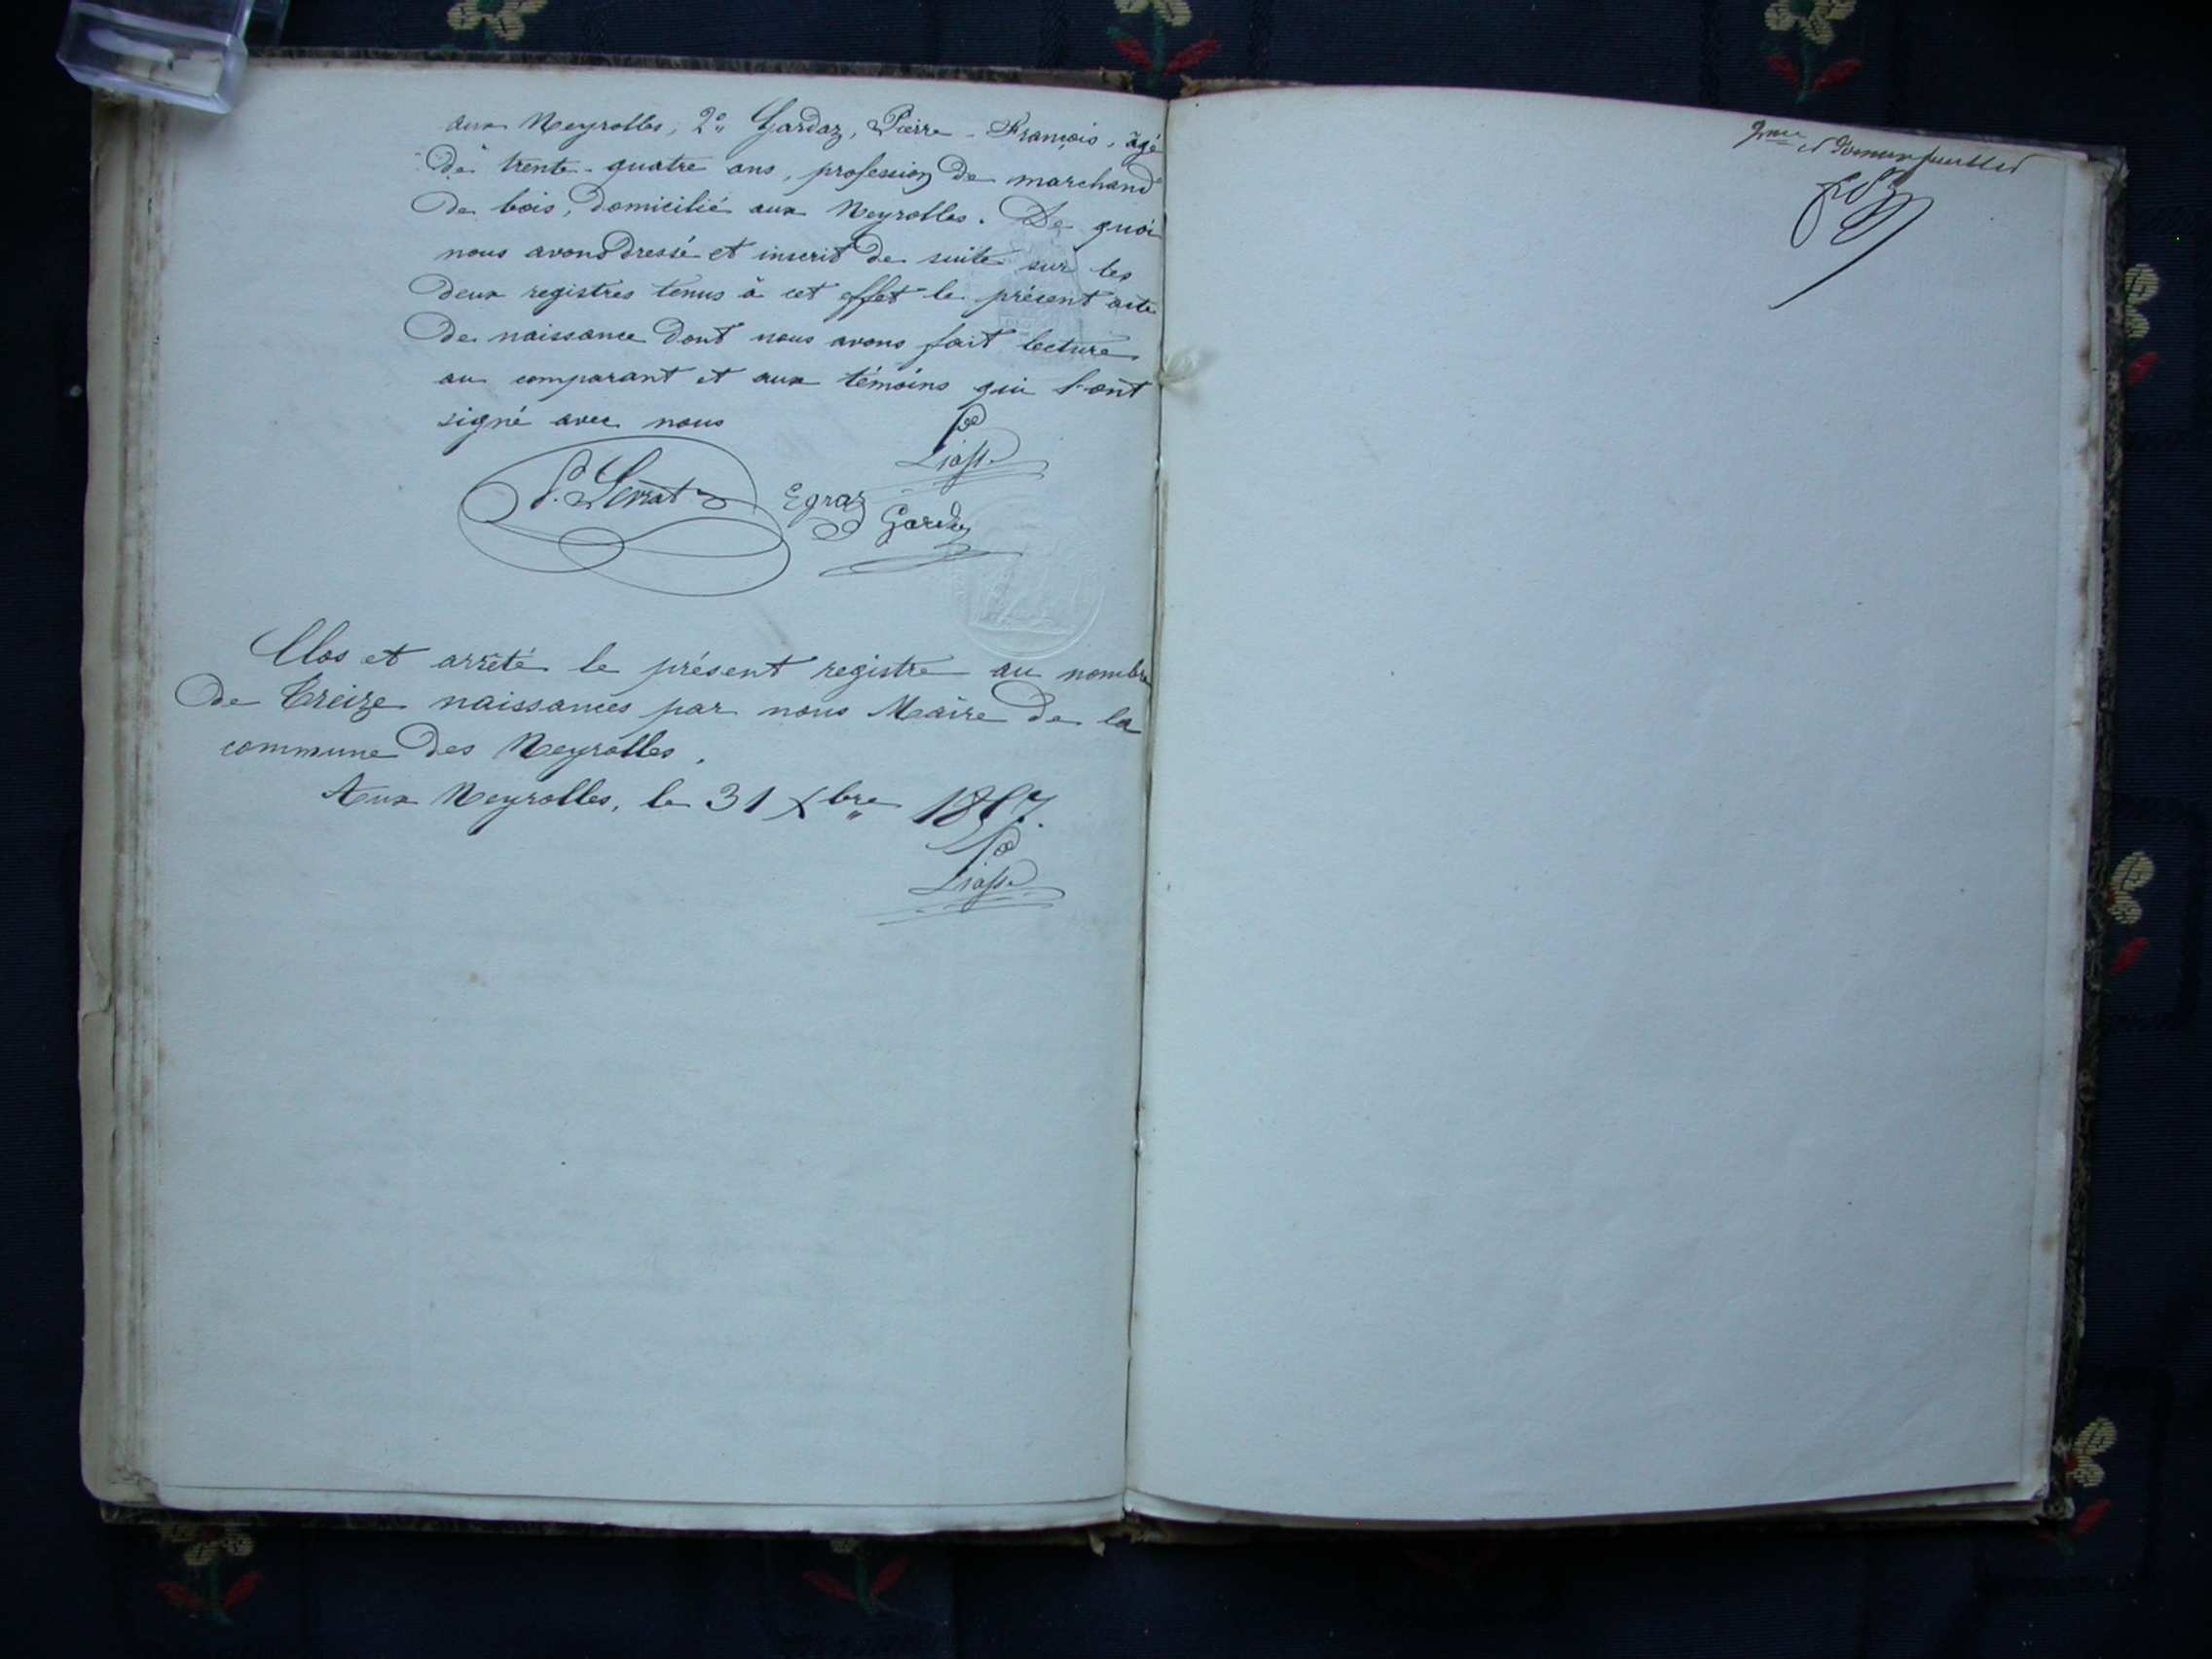 aux Neyrolles, 2° Gardaz, Pierre-François, âgé
de trente-quatre ans, profession de marchand
de bois, domicilié aux Neyrolles. De quoi
nous avons dressé et inscrit de suite sur les
deux registres tenus à cet effet le présent acte
de naissance dont nous avons fait lecture
au comparant et aux témoins qui l'ont
signé avec nous
Egraz
Gardaz
Clos et arrêté le présent registre au nombre
de treize naissances par nous Maire de la
commune des Neyrolles.
Aux Neyrolles, le 31 Xbre
et